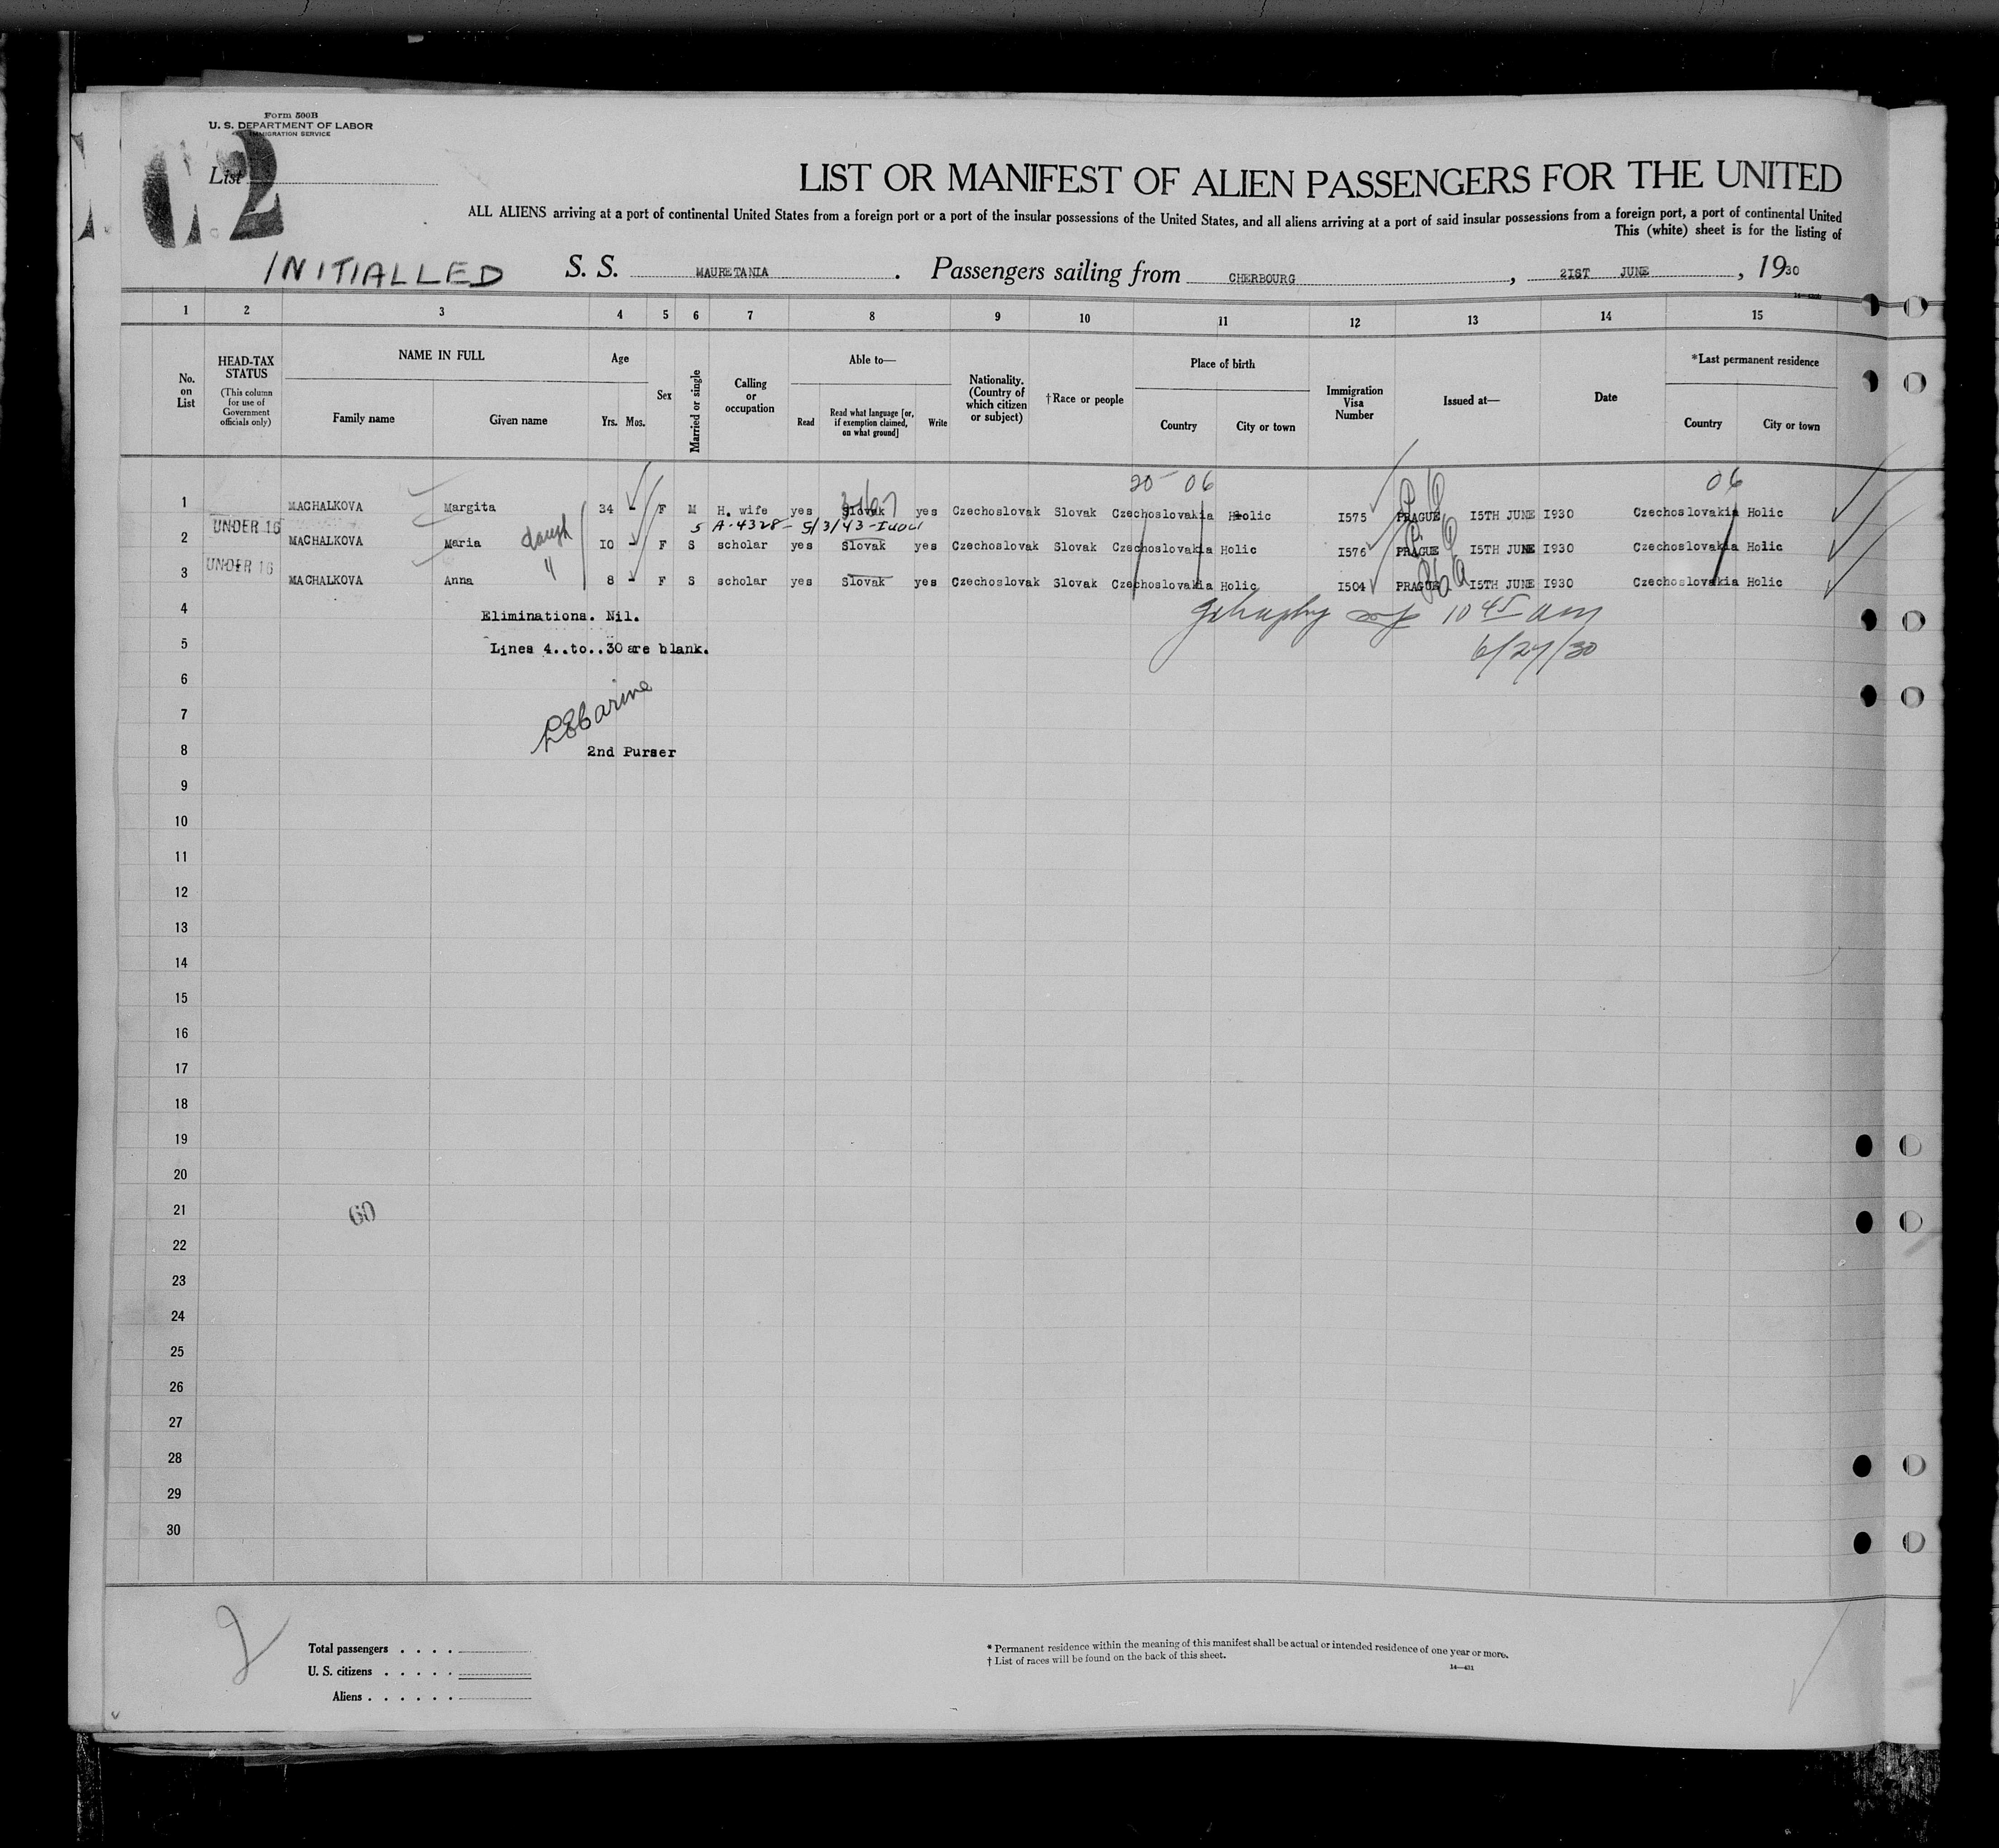 Form 500B
U. S. DEPARTMENT OF LABOR
IMMIGRATION SERVICE
List
2
LIST OR MANIFEST OF ALIEN PASSENGERS FOR THE UNITED
ALL ALIENS arriving at a port of continental United States from a foreign port or a port of the insular possessions of the United States, and all aliens arriving at a port of said insular possessions from a foreign port, a port of continental United
This (white) sheet is for the listing of
INITIALLED S. S. MAURETANIA . Passengers sailing from CHERBOURG , 21ST JUNE , 1930
1 2 3 4 5 6 7 8 9 10 11 12 13 14 15
No. on List
HEAD-TAX STATUS (This column for use of Government officials only)
NAME IN FULL Family name Given name
Age Yrs. Mos.
Sex
Married or single
Calling or occupation
Able to— Read Read what language [or, if exemption claimed, on what ground] Write
Nationality. (Country of which citizen or subject)
†Race or people
Place of birth Country City or town
Immigration Visa Number
Issued at—
Date
*Last permanent residence Country City or town
20 06 06
1 MACHALKOVA Margita 34 - F M H. wife yes Slovak yes Czechoslovak Slovak Czechoslovakia Holic I575 PRAGUE I5TH JUNE I930 Czechoslovakia Holic
5 A-4328- 5/3/43
2 UNDER 16 MACHALKOVA Maria daugh I0 - F S scholar yes Slovak yes Czechoslovak Slovak Czechoslovakia Holic I576 PRAGUE I5TH JUNE I930 Czechoslovakia Holic
3 UNDER 16 MACHALKOVA Anna " 8 - F S scholar yes Slovak yes Czechoslovak Slovak Czechoslovakia Holic I504 PRAGUE I5TH JUNE I930 Czechoslovakia Holic
4 Eliminations. Nil. 10 45 am
5 Lines 4..to..30 are blank. 6/27/30
6
7
8 2nd Purser
9
10
11
12
13
14
15
16
17
18
19
20
21 60
22
23
24
25
26
27
28
29
30
2
Total passengers . . . .
U. S. citizens . . . . .
Aliens . . . . . .
* Permanent residence within the meaning of this manifest shall be actual or intended residence of one year or more.
† List of races will be found on the back of this sheet.
14—431